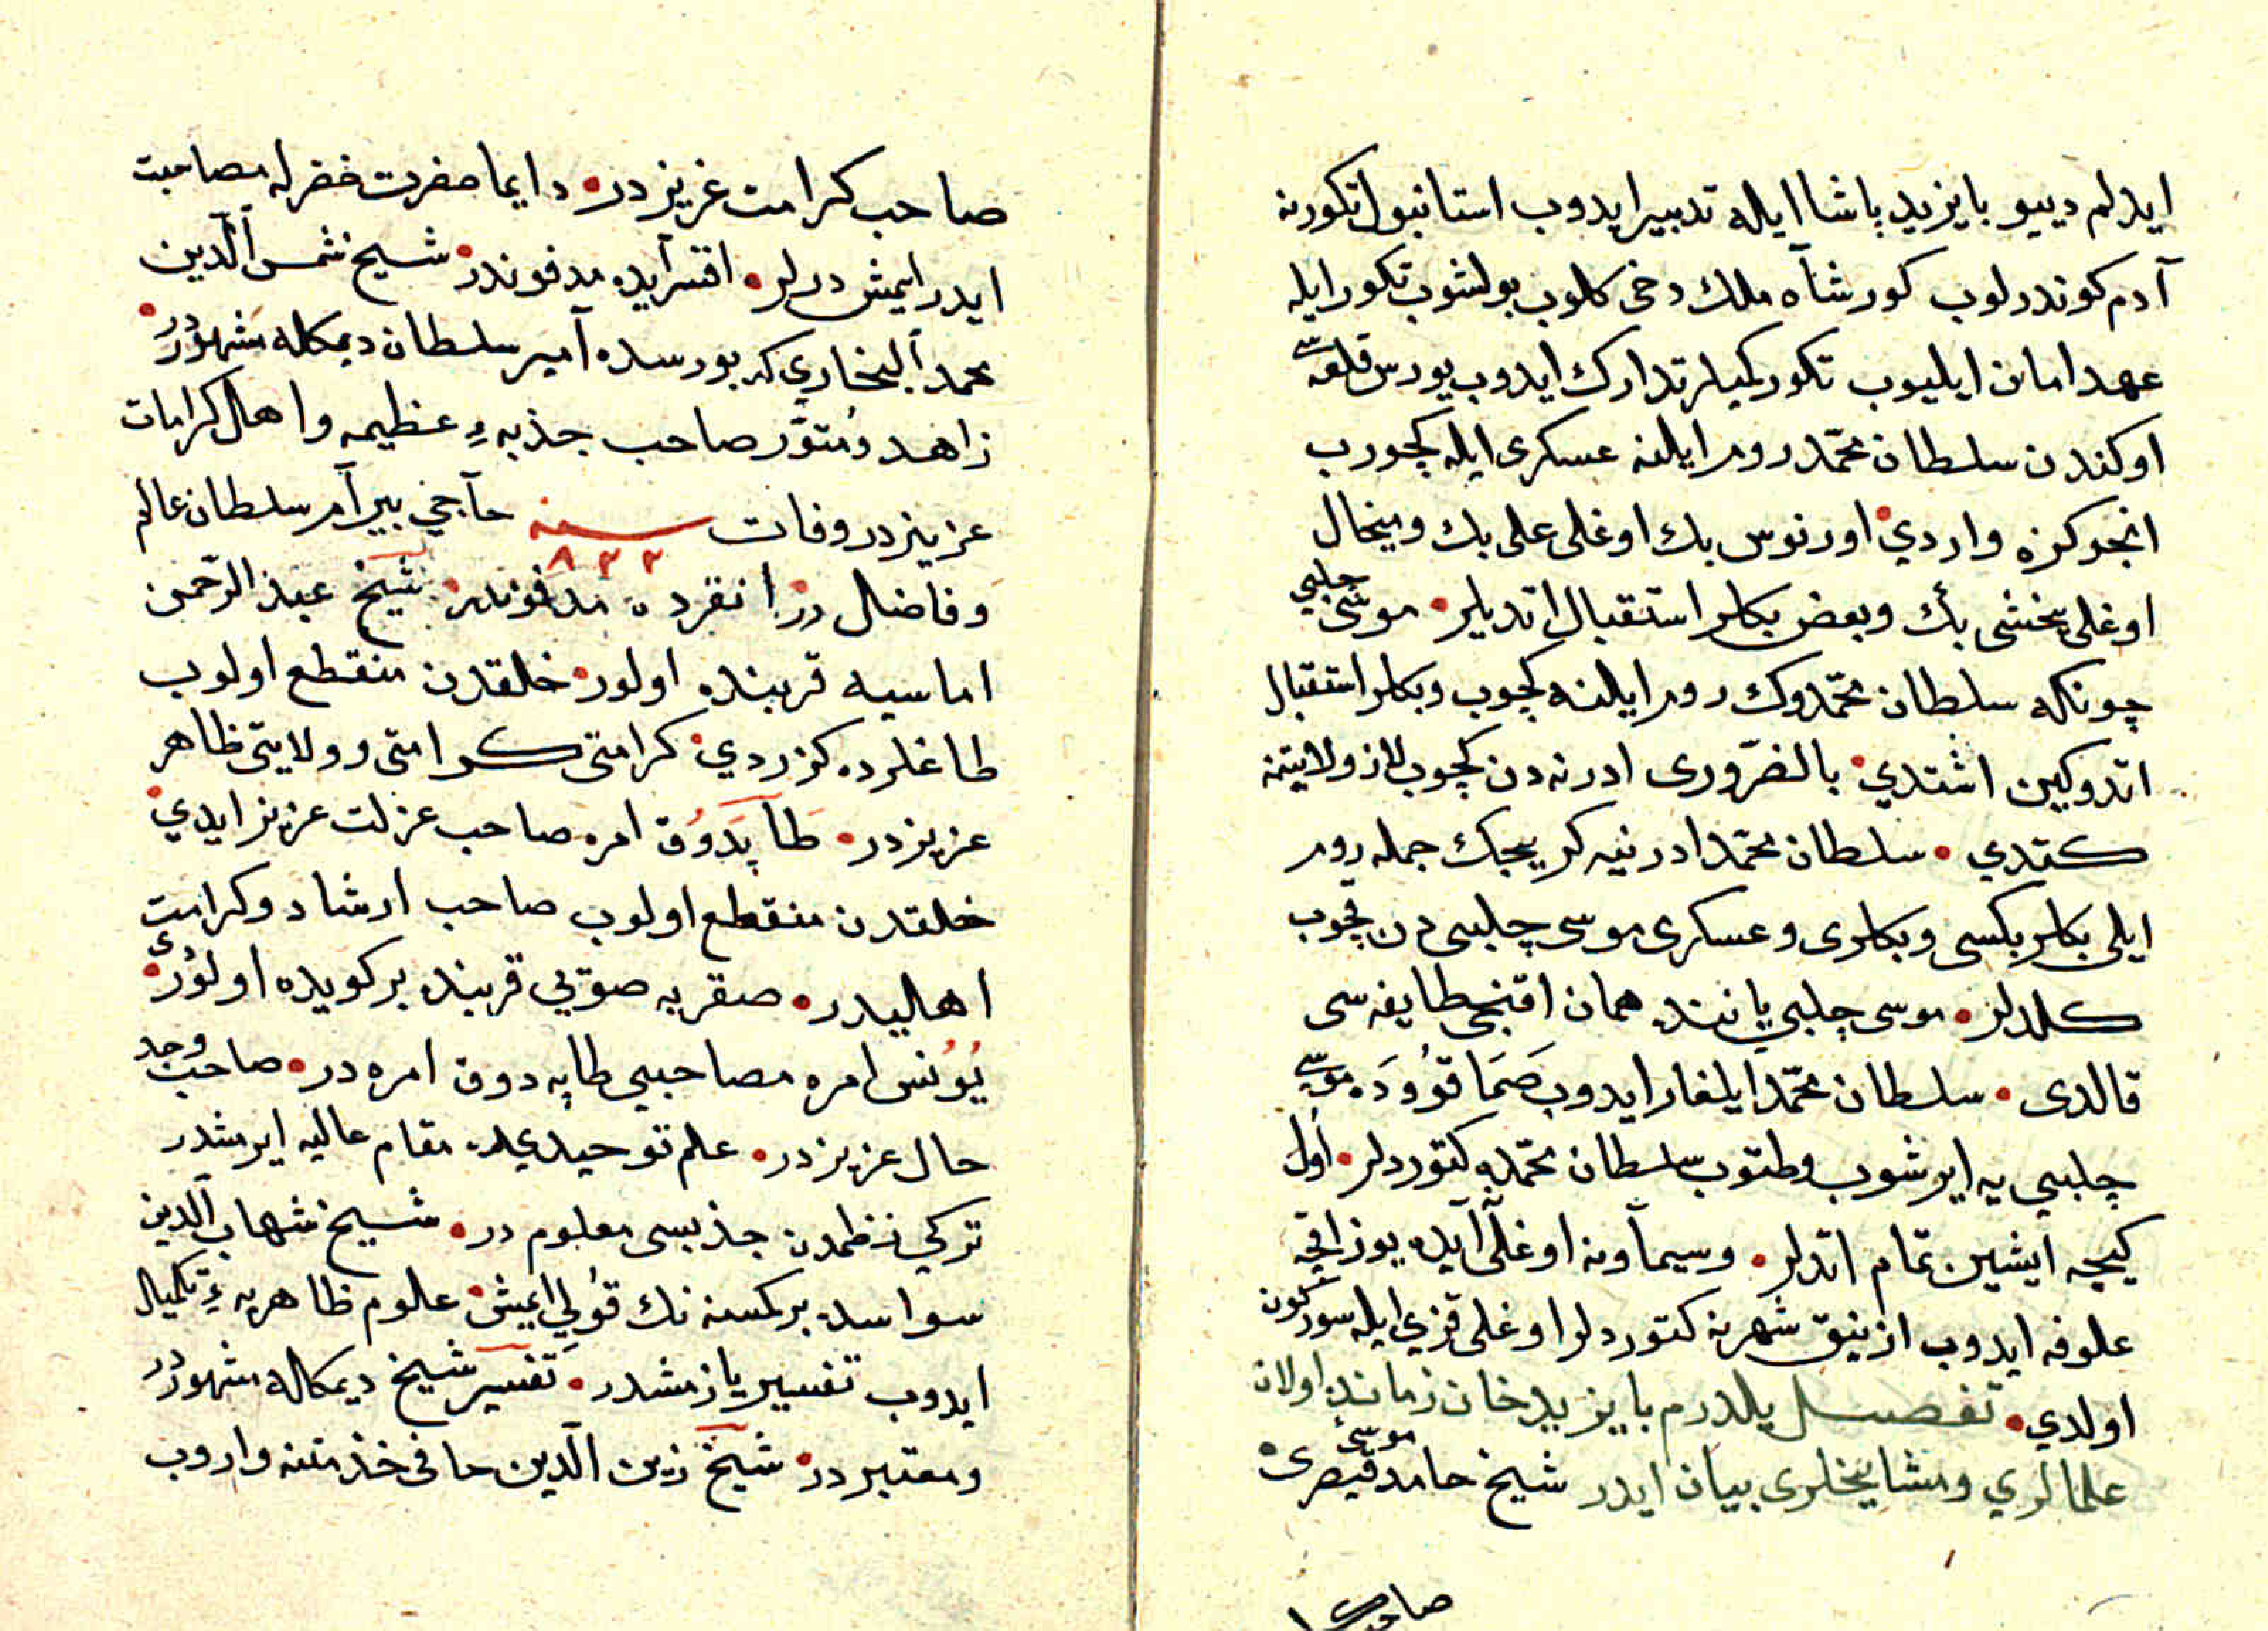 ایدلم دییو بایزید پاشا ایله تدبیر ایدوب استانبول تکورنه
آدم کوندرلوب کورشاه ملك دخی کلوب بولشوب تکور ایله
عهد امان ایلیوب تکور کمیلر تدارك ایدوب یورس قلعه سی
اوکندن سلطان محمّد روم ایلنه عسکری ایله کچورب
انجوکزه واردي اورنوس بك اوغلی علی بك و میخال
اوغلی یخشی بأك وبعض بکلر استقبال اتدیلر موسی چلبي
چونکه سلطان محمّدوك روم ایلنه کچوب وبکلر استقبال
اتدوکین اشتدي بالضّروری ادرنه دن کچوب لاز ولایتنه
کتدي سلطان محمّد ادرنیه کریجك جمله روم
ایلی بکلر بکسی وبکلری وعسکری موسی چلبی دن قچوب
کلدلر موسی چلبی یاننده همان اقنجی طایفه سی
قالدی سلطان محمّد ایلغار ایدوب صَمَاقوُودَه موسی
چلبی یه ایرشوب وطتوب سلطان محمّده کتوردلر اول
کیجه ایشین تمام اتدلر وسیماونه اوغلی آیده یوز اقچه
علوفه ایدوب ازنیق شهرنه کتوردلر اوغلی قزي ایله سورکون
اولدي تفصیل یلدرم بایزید خان زمانده اولان
علمالري ومشایخلری بیان ایدر شیخ حامد موسی قیصری
صاحب
صاحب کرامت عزیزدر دایما حضرت خضرله مصاحبت
ایدر ایمش درلر اقسرایده مدفوندر شیخ شمس الّدین
محمد البخاري که بورسده آمیر سلطان دیمکله مشهوردر
زاهد ومُتوّر صاحب جذبهء عظیمه واهال کرامات
عزیزدر وفات سنه ٨٣٣ حآجي بیرآم سلطان عالم
وفاضل در انقرده مدفوندر شیخ عبدالرّحمن
اماسیه قربنده اولور خلقدن منقطع اولوب
طاغلرده کزردي کرامتی کرامتی و ولایتی ظاهر
عزیزدر طَاپَدَوُق امره صاحب عزلت عزیز ایدي
خلقدن منقطع اولوب صاحب ارشاد وکرامت
اهالیدر صقریه صوّیي قربنده برکویده اولوردی
یُونُس امره مصاحبیی طاپه دوق امره در صاحب وجد
حال عزیزدر علم توحیدیله مقام عالیه ایرمشدر
ترکي نظمدن جذبسی معلوم در شیخ شهاب الّدین
سواسده برکمسنه نك قُولي ایمش علوم ظاهریهء تکمیل
ایدوب تفسیر یازمشدر تفسیر شیخ دیمکله مشهوردر
ومعتبردر شیخ زین الّدین حافی خذمتنه واروب